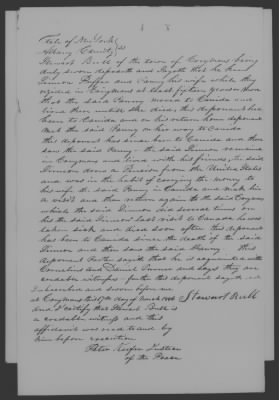 State of New York
Albany County } SS
Stewart Bull of the town of Coeymans being
duly sworn deposeth and sayeth that he knew
Simon and Fanny his wife while they
resided in Coeymans at least fifteen years
that the said Fanny moved to Canada and
lived there until she died this deponent has
been to Canada and on his return home deponent
met the said Fanny on her way to Canada
this deponent has since been to Canada and there
saw the said Fanny the said Simon remained
in Coeymans and lived with his friends, the said
Simon drew a Pension from the United States
and was in the habit of carrying the money to
his wife the said Fanny in Canada and make her
a visit and then return again to the said Coeymans
which the said Simon did several times on
his the said Simon last visit to Canada he was
taken sick and died soon after this deponent
has been to Canada since the death of the said
Simon and then saw the said Fanny this
deponent further sayeth that he is acquainted with
Cornelius and Daniel and says they are
credable witness further this deponent sayeth not
Subscribed and sworn before me
at Coeymans this 17th day of March 1846 Stewart Bull
And I certify that Stewart Bull is
a credable witness and this
affidavit was read to and by
him before execution
Peter Justice
of the Peace